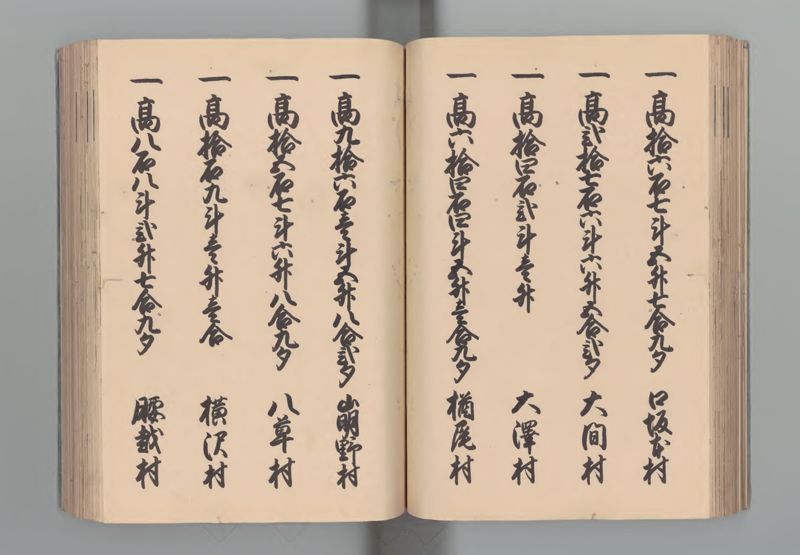 一高拾六石七斗五升七合九夕 口坂本村
一高弐拾七石六斗六升五合弐夕 大間村
一高拾四石弐斗壱升 大澤村
一高六拾四石四斗五升壱合九夕 楢尾村
一高九拾六石壱斗五升八合弐夕 崩野村
一高拾五石七斗六升八合九夕 八草村
一高拾石九斗壱升壱合 横沢村
一高八石八斗弐升七合九夕 腰越村